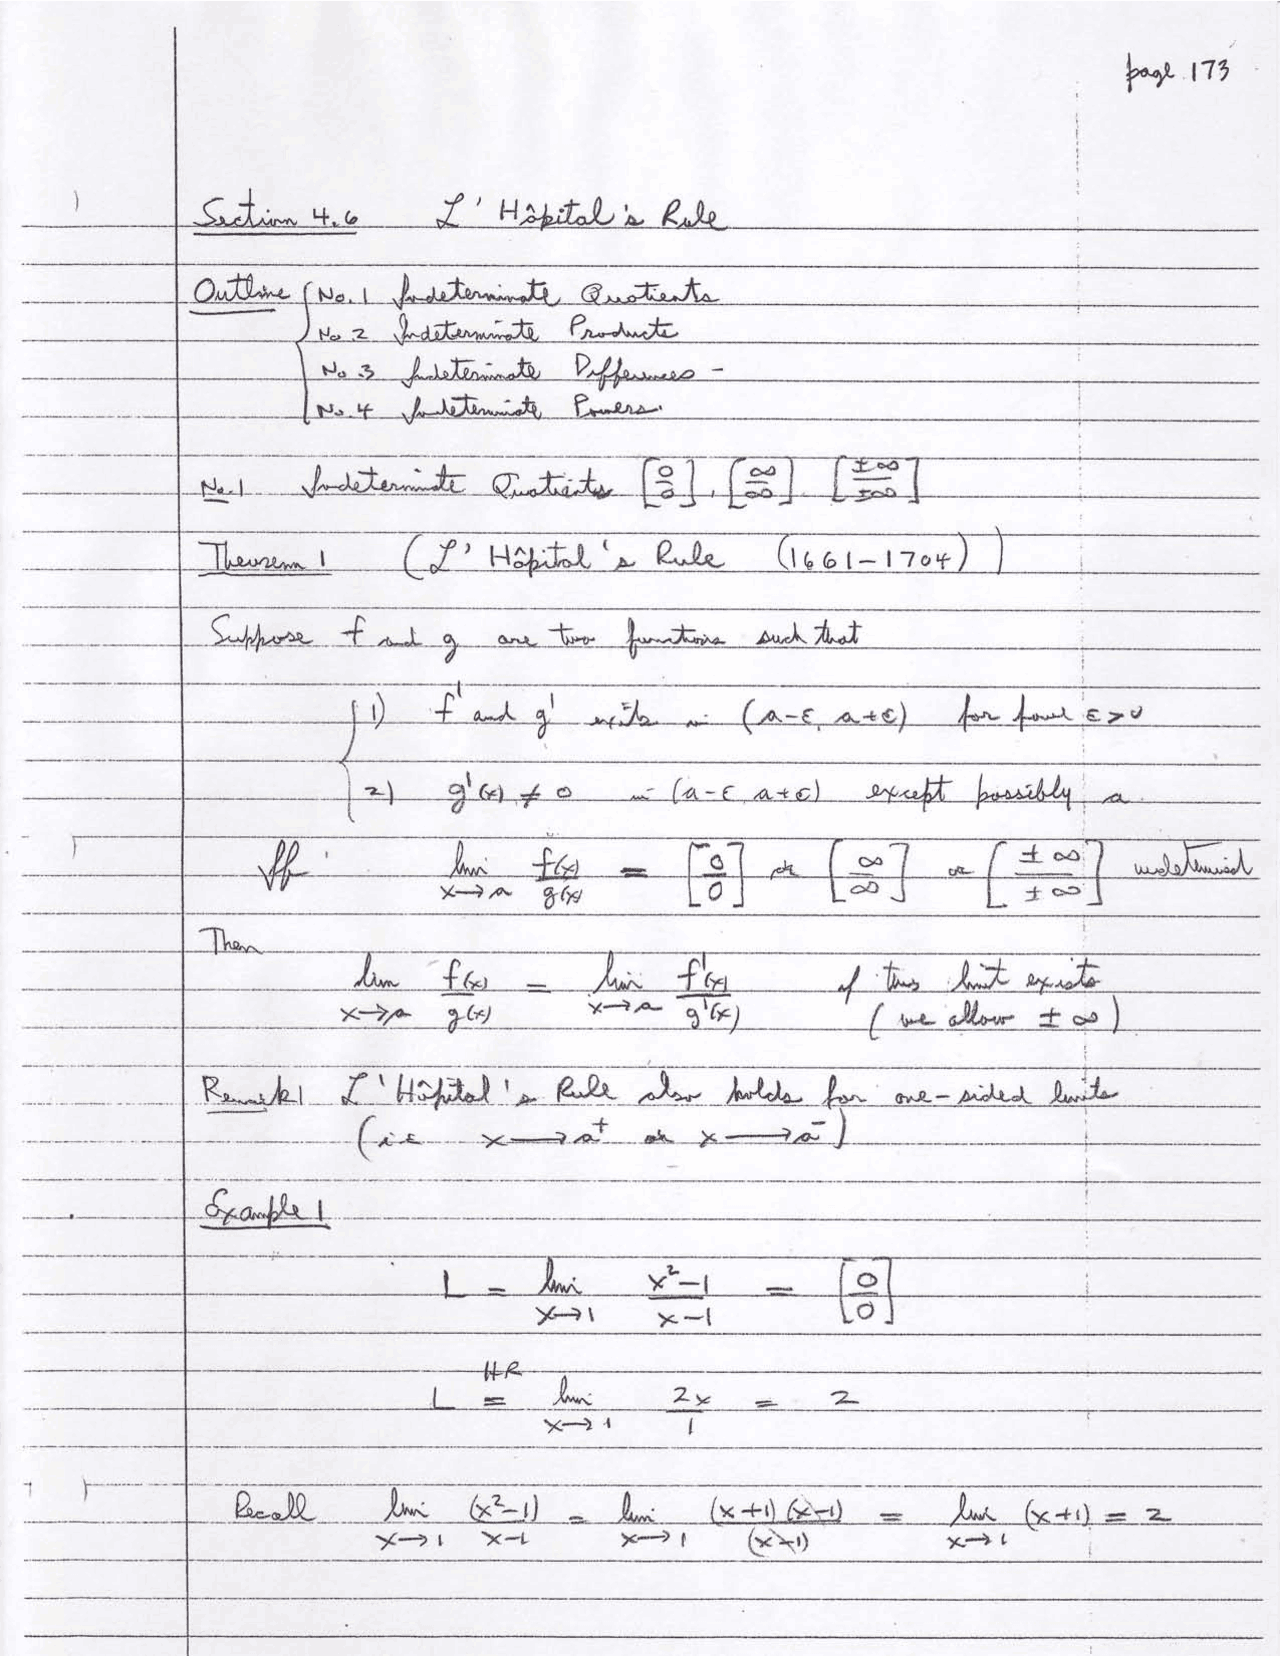 page 173
Section 4.6 L'Hôpital's Rule
Outline { No. 1 Indeterminate Quotients
No. 2 Indeterminate Products
No. 3 Indeterminate Differences -
No. 4 Indeterminate Powers.
No. 1 Indeterminate Quotients [0/0], [∞/∞]. [±∞/±∞]
Theorem 1 (L'Hôpital's Rule (1661-1704))
Suppose f and g are two functions such that
1) f' and g' exists in (a-ε, a+ε) for ε>0
2) g'(x) ≠ 0 in (a-ε, a+ε) except possibly a
If lim x→a f(x)/g(x) = [0/0] or [∞/∞] or [±∞/±∞]
Then
lim x→a f(x)/g(x) = lim x→a f'(x)/g'(x) if this limit exists
(we allow ±∞)
Remark 1 L'Hôpital's Rule also holds for one-sided limits
(i.e x→a⁺ or x→a⁻)
Example 1
L = lim x→1 x²-1/x-1 = [0/0]
L HR= lim x→1 2x/1 = 2
Recall lim x→1 (x²-1)/x-1 = lim x→1 (x+1)(x-1)/(x-1) = lim x→1 (x+1) = 2